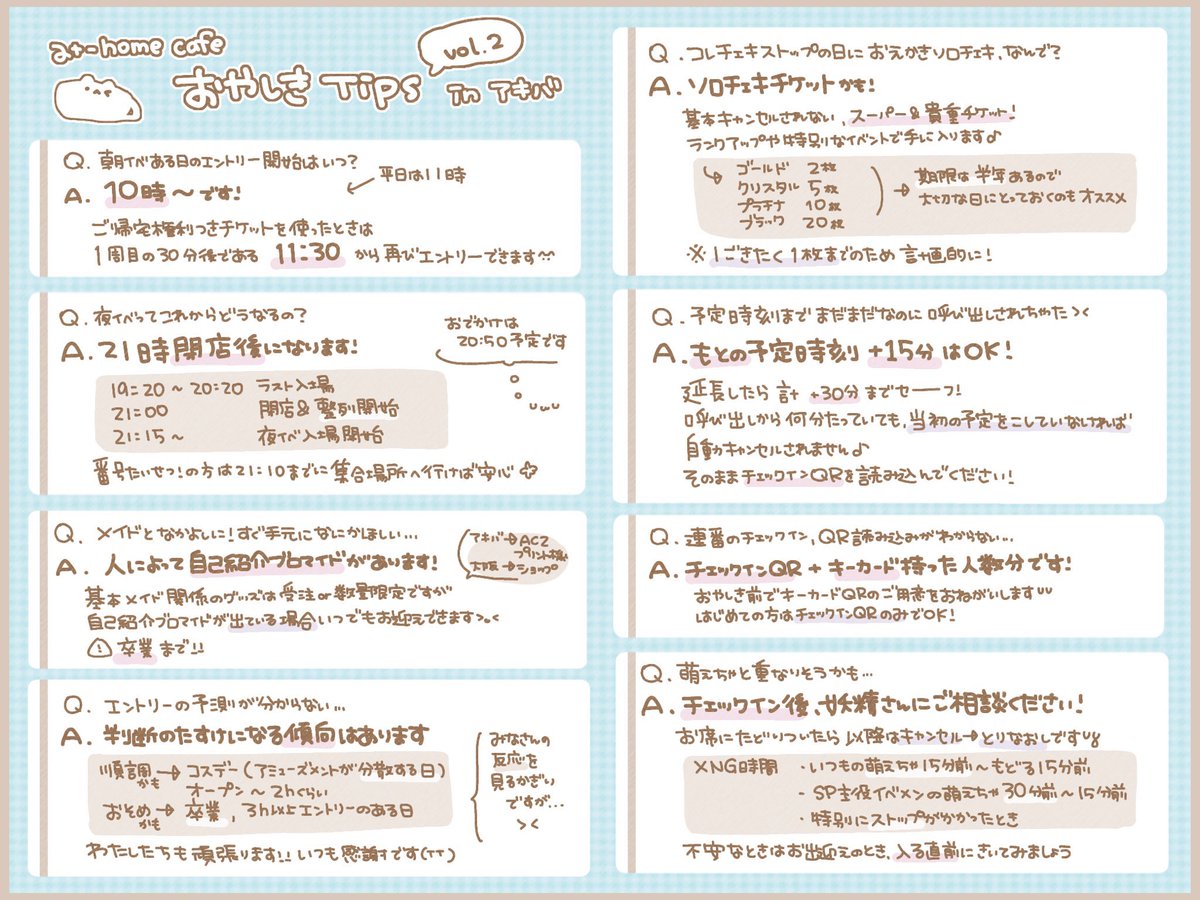 at-home cafe
おやしき Tips in アキバ
vol.2
Q. 朝イベある日のエントリー開始はいつ?
A. 10時〜です!
平日は11時
ご帰宅権利つきチケットを使ったときは
1周目の30分後である 11:30 から再びエントリーできます〰
Q. 夜イベってこれからどうなるの?
A. 21時閉店後になります!
おでかけは
20:50予定です
19:20〜20:20 ラスト入場
21:00 閉店&整列開始
21:15〜 夜イベ入場開始
uwu
番号たいせつ!の方は21:10までに集合場所へ行けば安心
Q. メイドとなかよしに!すぐ手元になにかほしい...
A. 人によって自己紹介ブロマイドがあります!
アキバ→ACZ
プリント機
大阪→ショップ
基本メイド関係のグッズは受注or数量限定ですが
自己紹介ブロマイドが出ている場合いつでもお迎えできます>.<
⚠ 卒業まで!!
Q. エントリーの予測が分からない...
A. 判断のたすけになる傾向はあります
順調かも→コスデー(アミューズメントが分散する日)
オープン〜2hくらい
おそめかも→卒業、3h以上エントリーのある日
みなさんの
反応を
見るかぎり
ですが...
><
わたしたちも頑張ります!!いつも感謝です(TT)
Q. コレチェキストップの日におえかきソロチェキ、なんで?
A. ソロチェキチケットかも!
基本キャンセルされない、スーパー&貴重チケット!
ランクアップや特別なイベントで手に入ります♪
ゴールド 2枚
クリスタル 5枚
プラチナ 10枚
ブラック 20枚
→期限は半年あるので
大切な日にとっておくのもオススメ
※1ごきたく1枚までのため計画的に!
Q. 予定時刻までまだまだなのに呼び出しされちゃた><
A. もとの予定時刻+15分はOK!
延長したら計+30分までセーーフ!
呼び出しから何分たっていても、当初の予定をこしていなければ
自動キャンセルされません♪
そのままチェックインQRを読み込んでください!
Q. 連番のチェックイン、QR読み込みがわからない...
A. チェックインQR+キーカード持った人数分です!
おやしき前でキーカードQRのご用意をおねがいします
はじめての方はチェックインQRのみでOK!
Q. 萌えちゃと重なりそうかも...
A. チェックイン後、妖精さんにご相談ください!
お席にたどりついたら以降はキャンセル→とりなおしです
×NG時間 ・いつもの萌えちゃ15分前〜もどる15分前
・SP主役イベメンの萌えちゃ30分前〜15分前
・特別にストップがかかったとき
不安なときはお出迎えのとき、入る直前にきいてみましょう